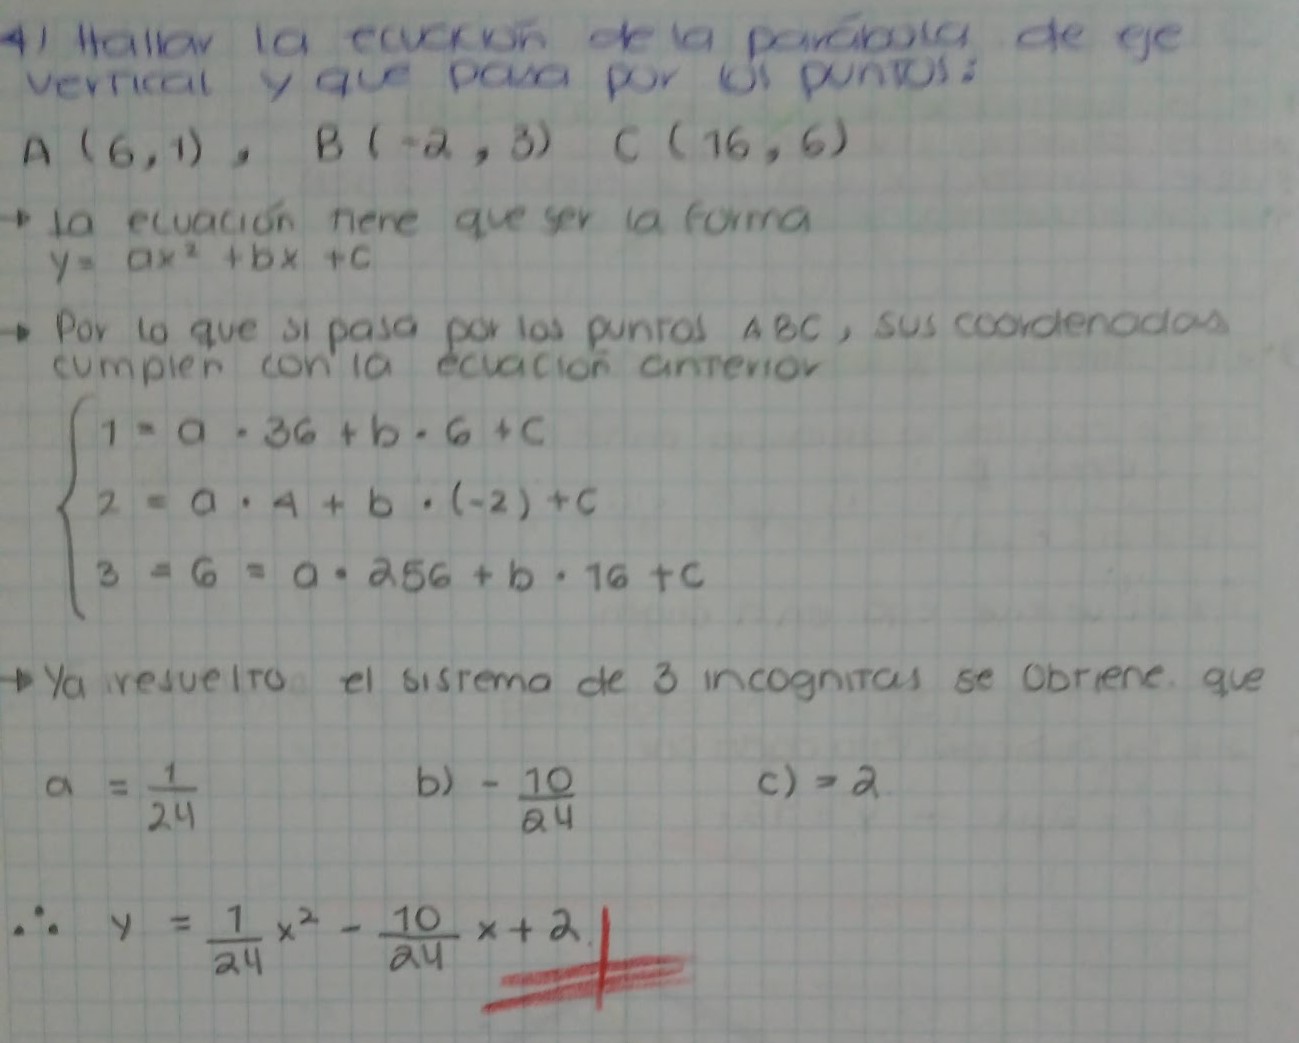 4) Hallar la ecuación de la parábola de eje
vertical y que pasa por los puntos:
A (6,1), B (-2, 3) C (16, 6)
→ la ecuación tiene que ser la forma
y= ax² + bx + c
→ Por lo que si pasa por los puntos ABC, sus coordenadas
cumplen con la ecuación anterior
1 = a · 36 + b · 6 + c
2 = a · 4 + b · (-2) + c
3 = 6 = a · 256 + b · 16 + c
→ Ya resuelto el sistema de 3 incognitas se obtiene que
a = 1/24 b) - 10/24 c) = 2
∴ y = 1/24 x² - 10/24 x + 2